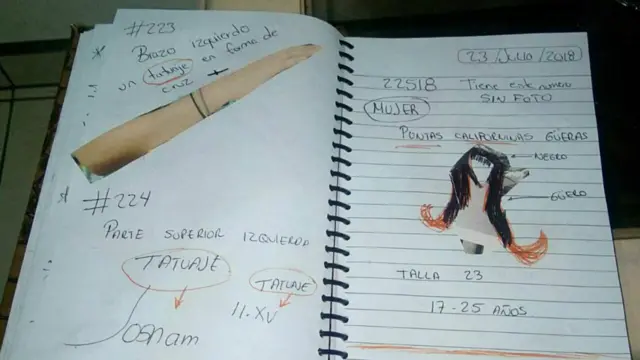 #223
Brazo izquierdo
un tatuaje en forma de
cruz
#224
PARTE SUPERIOR IZQUIERDA
TATUAJE
TATUAJE
11.XV
Josnam
23/Julio/2018
22518 Tiene este numero
SIN FOTO
MUJER
PUNTAS CALIFORNINAS GÜERAS
NEGRO
GÜERO
TALLA 23
17-25 AÑOS